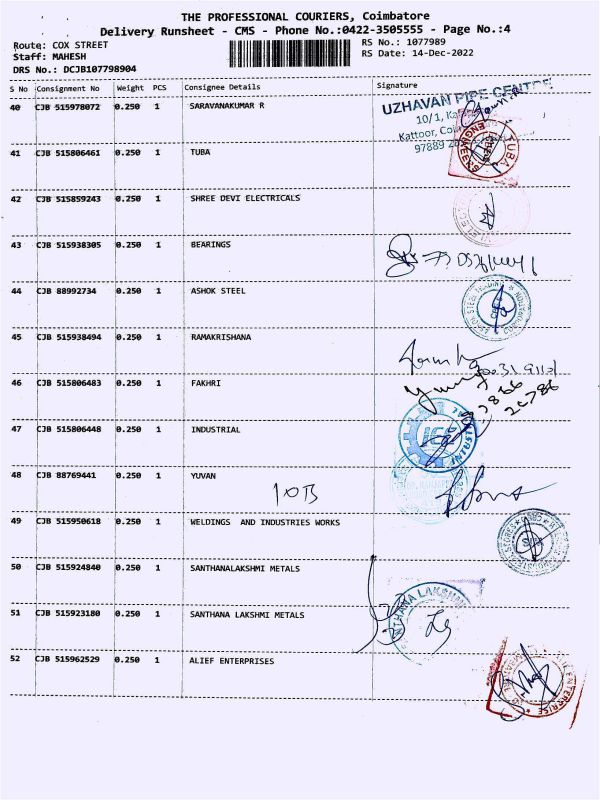 THE PROFESSIONAL COURIERS, Coimbatore
Delivery Runsheet - CMS - Phone No.:0422-3505555 - Page No.:4
Route: COX STREET
RS No.: 1077989
Staff: MAHESH
RS Date: 14-Dec-2022
DRS No.: DCJB107798904
S No Consignment No Weight PCS Consignee Details Signature
40 CJB 515978072 0.250 1 SARAVANAKUMAR R
UZHAVAN PIPE CENTRE
10/1,
Kattoor,
97889
41 CJB 515806461 0.250 1 TUBA
TUBA ENGINEERS
42 CJB 515859243 0.250 1 SHREE DEVI ELECTRICALS
43 CJB 515938305 0.250 1 BEARINGS
44 CJB 88992734 0.250 1 ASHOK STEEL
45 CJB 515938494 0.250 1 RAMAKRISHANA
46 CJB 515806483 0.250 1 FAKHRI
47 CJB 515806448 0.250 1 INDUSTRIAL
48 CJB 88769441 0.250 1 YUVAN
49 CJB 515950618 0.250 1 WELDINGS AND INDUSTRIES WORKS
50 CJB 515924840 0.250 1 SANTHANALAKSHMI METALS
51 CJB 515923180 0.250 1 SANTHANA LAKSHMI METALS
52 CJB 515962529 0.250 1 ALIEF ENTERPRISES